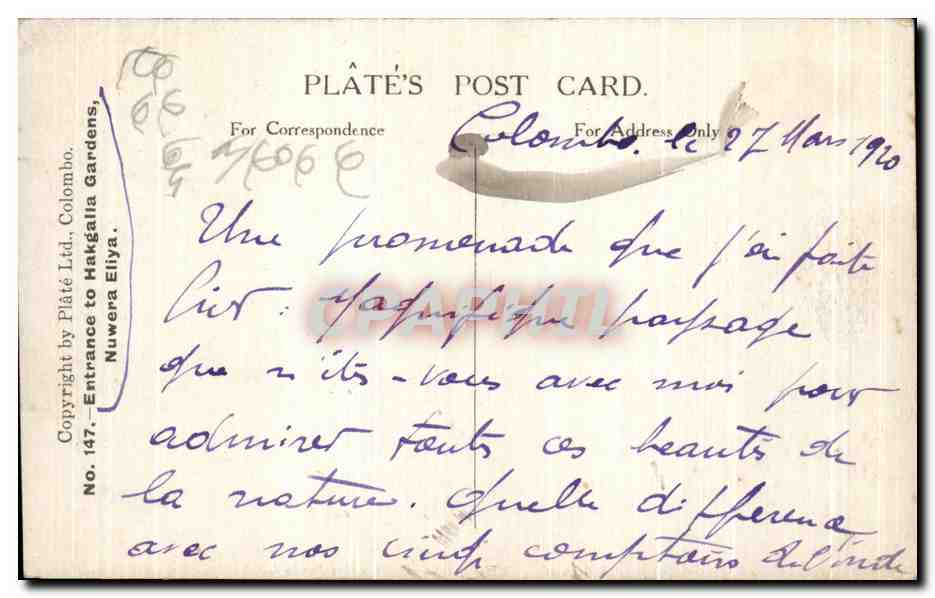 PLÂTÉ'S POST CARD.
For Correspondence
For Address Only
Colombo. le 27 Mars 1920
Une promenade que j'ai faite
hier : Magnifique paysage
que n'êtes-vous avec moi pour
admirer toutes ces beautés de
la nature. Quelle différence
avec nos cinq comptoirs de l'Inde
Copyright by Plâté Ltd., Colombo.
No. 147.—Entrance to Hakgalla Gardens,
Nuwera Eliya.
CPAPHIL